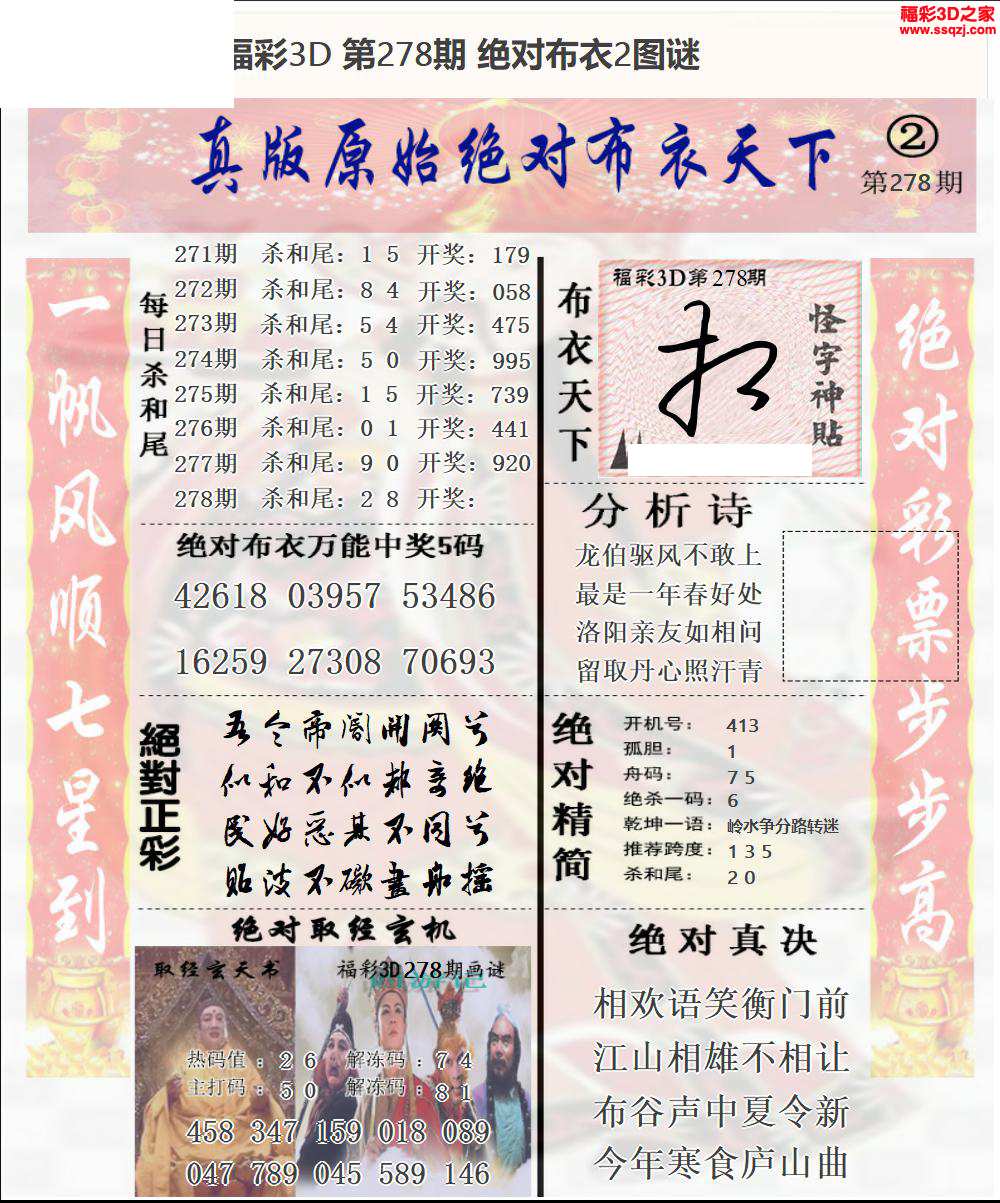 福彩3D之家
www.ssqzj.com
福彩3D 第278期 绝对布衣2图谜
真版原始绝对布衣天下
②
第278期
一帆风顺七星到
每日杀和尾
271期 杀和尾：1 5 开奖：179
272期 杀和尾：8 4 开奖：058
273期 杀和尾：5 4 开奖：475
274期 杀和尾：5 0 开奖：995
275期 杀和尾：1 5 开奖：739
276期 杀和尾：0 1 开奖：441
277期 杀和尾：9 0 开奖：920
278期 杀和尾：2 8 开奖：
绝对布衣万能中奖5码
42618 03957 53486
16259 27308 70693
絕對正彩
绝对取经玄机
取经玄天书
福彩3D278期画谜
热码值：2 6 解冻码：7 4
主打码：5 0 解冻码：8 1
458 347 159 018 089
047 789 045 589 146
布衣天下
福彩3D第278期
怪字神貼
分析诗
龙伯驱风不敢上
最是一年春好处
洛阳亲友如相问
留取丹心照汗青
绝对精简
开机号：413
孤胆：1
舟码：7 5
绝杀一码：6
乾坤一语：岭水争分路转迷
推荐跨度：1 3 5
杀和尾：2 0
绝对真决
相欢语笑衡门前
江山相雄不相让
布谷声中夏令新
今年寒食庐山曲
绝对彩票步步高